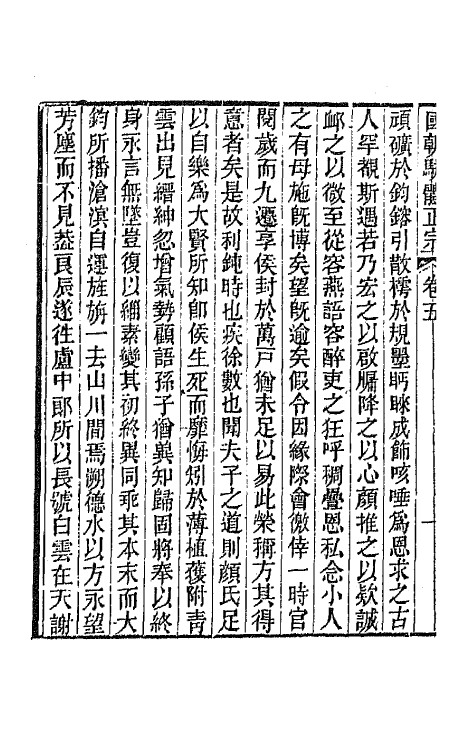 國朝駢體正宗 卷五 一
頑礦於鈞鎔引散樗於規墨眄睞成飾咳唾爲恩求之古
人罕覩斯遇若乃宏之以啟牖降之以心顏推之以欵誠
卹之以微至從容燕語容醉吏之狂呼稠疊恩私念小人
之有母施旣博矣望旣逾矣假令因緣際會徼倖一時官
閱歲而九遷享侯封於萬戸猶未足以易此榮稱方其得
意者矣是故利鈍時也疾徐數也聞夫子之道則顏氏足
以自樂爲大賢所知卽侯生死而靡悔矧於薄植獲附靑
雲出見縉紳忽增氣勢顧語孫子猶冀知歸固將奉以終
身永言無墜豈復以緇素變其初終異同乖其本末而大
鈞所播滄溟自運旌旃一去山川間焉溯德水以方永望
芳塵而不見葢良辰遂徃盧中郞所以長號白雲在天謝